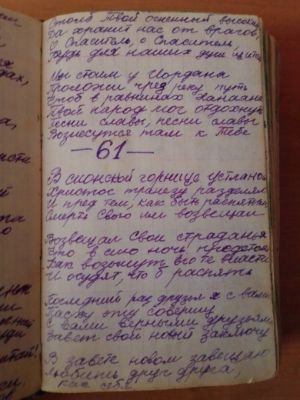 Столп Твой огненный высокий
Да хранит нас от врагов,
О Спаситель, о Спаситель
Будь для наших душ щитом
Мы стоим у Иордана
Проложи чрез реку путь
Чтоб в равнинах Ханаана
Твой народ мог отдохнуть
Песни славы, песни славы
Вознесутся там к Тебе
—61—
В сионской горнице устланой
Христос трапезу разделял
И пред тем, как быть распятым
Смерть Свою им возвещал
Возвещал Свои страданья
Что в сию ночь
Как возьмут Его те власти
И осудят, что б распять
Последний раз друзья Я с вами
Пасху эту совершу
С вами верными друзьями
Завет свой новый заключу
В завете новом завещаю
Любить друг друга,
как себя